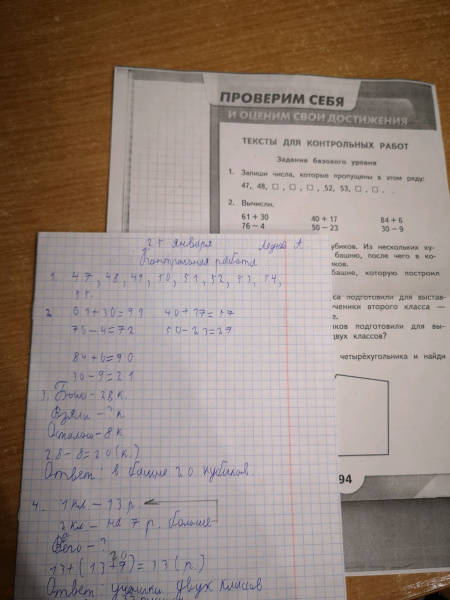 ПРОВЕРИМ СЕБЯ
И ОЦЕНИМ СВОИ ДОСТИЖЕНИЯ
ТЕКСТЫ ДЛЯ КОНТРОЛЬНЫХ РАБОТ
Задания базового уровня
1. Запиши числа, которые пропущены в этом ряду:
47, 48, □, □, □, 52, 53, □, □.
2. Вычисли.
61 + 30 40 + 17 84 + 6
76 − 4 50 − 23 30 − 9
убиков. Из нескольких ку-
башню, после чего в ко-
биков.
башне, которую построил
са подготовили для выстав-
ченики второго класса —
е.
ников подготовили для вы-
двух классов?
четырёхугольника и найди
94
25 января
Контрольная работа
1. 47, 48, 49, 50, 51, 52, 53, 54,
55.
2. 61+30=91 40+17=57
76-4=72 50-23=27
84+6=90
30-9=21
3. Было - 28 к.
Взяли - ? к.
Осталось - 8 к.
28-8=20 (к.)
Ответ: в башне 20 кубиков.
4. 1 кл. - 13 р.
2 кл. - на 7 р. больше
Всего - ?
20
13+(13+7)=33 (р.)
Ответ: ученики двух классов